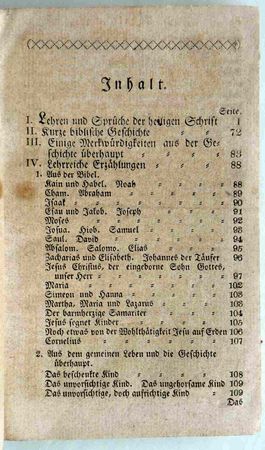 Inhalt.
Seite.
I. Lehren und Sprüche der heiligen Schrift 1
II. Kurze biblische Geschichte „ „ 72
III. Einige Merkwürdigkeiten aus der Ge-
schichte überhaupt „ „ „ „ 83
IV. Lehrreiche Erzählungen „ „ „ 88
1. Aus der Bibel.
Kain und Habel. Noah „ „ „ „ 88
Cham. Abraham „ „ „ „ „ 89
Isaak „ „ „ „ „ „ 90
Esau und Jakob. Joseph „ „ „ „ 91
Moses „ „ „ „ „ „ 92
Josua. Hiob. Samuel „ „ „ „ 93
Saul. David „ „ „ „ „ 94
Absalom. Salomo. Elias „ „ „ „ 95
Zacharias und Elisabeth. Johannes der Täufer 96
Jesus Christus, der eingeborne Sohn Gottes,
unser Herr „ „ „ „ „ 97
Maria „ „ „ „ „ „ 102
Simeon und Hanna „ „ „ „ 103
Martha, Maria und Lazarus „ „ „ 103
Der barmherzige Samariter „ „ „ 104
Jesus segnet Kinder „ „ „ „ 105
Noch etwas von der Wohlthätigkeit Jesu auf Erden 106
Cornelius „ „ „ „ „ 107
2. Aus dem gemeinen Leben und die Geschichte
überhaupt.
Das beschenkte Kind „ „ „ „ 108
Das unvorsichtige Kind. Das ungehorsame Kind 109
Das unvorsichtige, doch aufrichtige Kind „ 109
Das